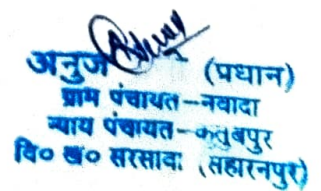 अनुज (प्रधान)
ग्राम पंचायत-नवादा
न्याय पंचायत-कुतुबपुर
वि० ख० सरसावा (सहारनपुर)